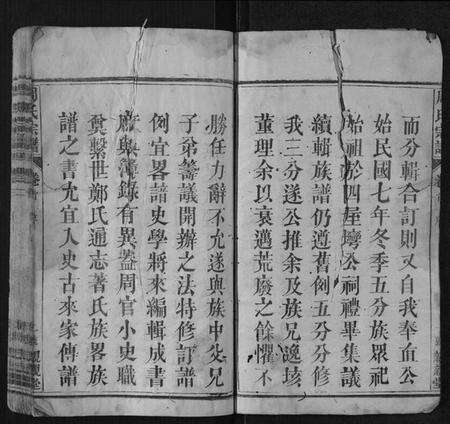 周氏宗譜
而分輯合訂則又自我奉直公
始民國七年冬季五分族眾祀
始祖於四屋塆公祠禮畢集議
續輯族譜仍遵舊例五分分修
我三分遂公推余及族兄逸垓
董理余以衰邁荒廢之餘懼不
勝任力辭不允遂與族中父兄
子弟籌議開辦之法特修訂譜
例宜畧諳史學將來編輯成書
庶與濫錄有異蓋周官小史職
奠繫世鄭氏通志著氏族畧族
譜之書尤宜入史古來家傳譜
周氏宗譜 卷首